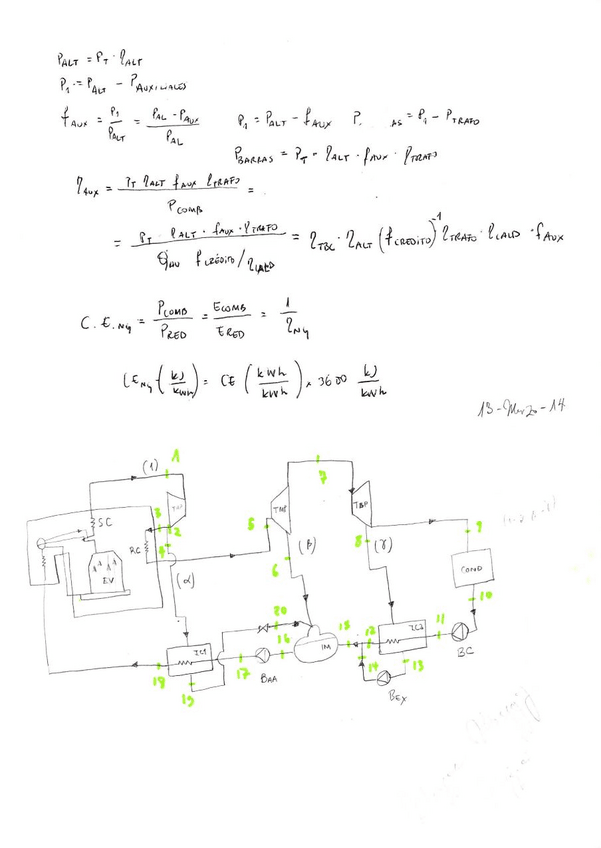 P_ALT = P_T · η_ALT
P_1 = P_ALT - P_AUXILIARES
f_AUX = P_1 / P_ALT = (P_AL - P_AUX) / P_AL    P_1 = P_ALT - f_AUX    P. AS = P_1 - P_TRAFO
P_BARRAS = P_T - η_ALT · f_AUX · η_TRAFO
η_AUX = (P_T η_ALT f_AUX η_TRAFO) / P_COMB =
= (P_T · η_ALT · f_AUX · η_TRAFO) / (Q_HU f_CRÉDITO / η_CALD) = η_TBC · η_ALT (f_CREDITO)^-1 η_TRAFO · η_CALD · f_AUX
C.E._N4 = P_COMB / P_RED = E_COMB / E_RED = 1 / η_N4
CE_N4 (kJ/kWh) = CE (kWh/kWh) × 3600 kJ/kWh
13-Marzo-14
(1) 1
7
SC
TAP
3
2
4
RC
EV
(α)
5
TMP
(β)
6
TBP
8
(γ)
9
COND
10
20
IC1
18
19
17
16
BAA
IM
15
12
IC3
11
BC
14
13
BEX